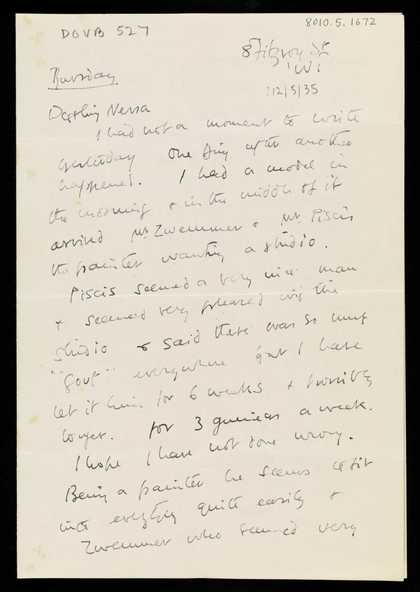 DOVB 527
8010.5.1672
8 Fitzroy St
W1
12/5/35
Thursday
Darling Nessa
I had not a moment to write
yesterday one thing after another
happened. I had a model in
the morning & in the middle of it
arrived Mr Zwemmer & Mr Piscis
the painter wanting a studio.
Piscis seemed a very nice man
& seemed very pleased with the
studio & said there was so much
everywhere that I have
let it him for 6 weeks & possibly
longer. for 3 guineas a week.
I hope I have not done wrong.
Being a painter he seems to fit
into everything quite easily &
Zwemmer who seemed very